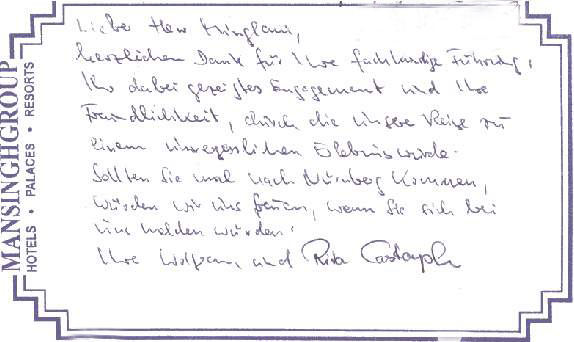 MANSINGHGROUP
HOTELS • PALACES • RESORTS
Lieber Herr
herzlichen Dank für Ihre fachkundige Führung,
Ihr dabei gezeigtes Engagement und Ihre
Freundlichkeit, durch die unsere Reise zu
einem unvergesslichen Erlebnis wurde.
Sollten Sie mal nach Nürnberg kommen,
würden wir uns freuen, wenn Sie sich bei
uns melden würden.
Ihre Wolfgang und Rita